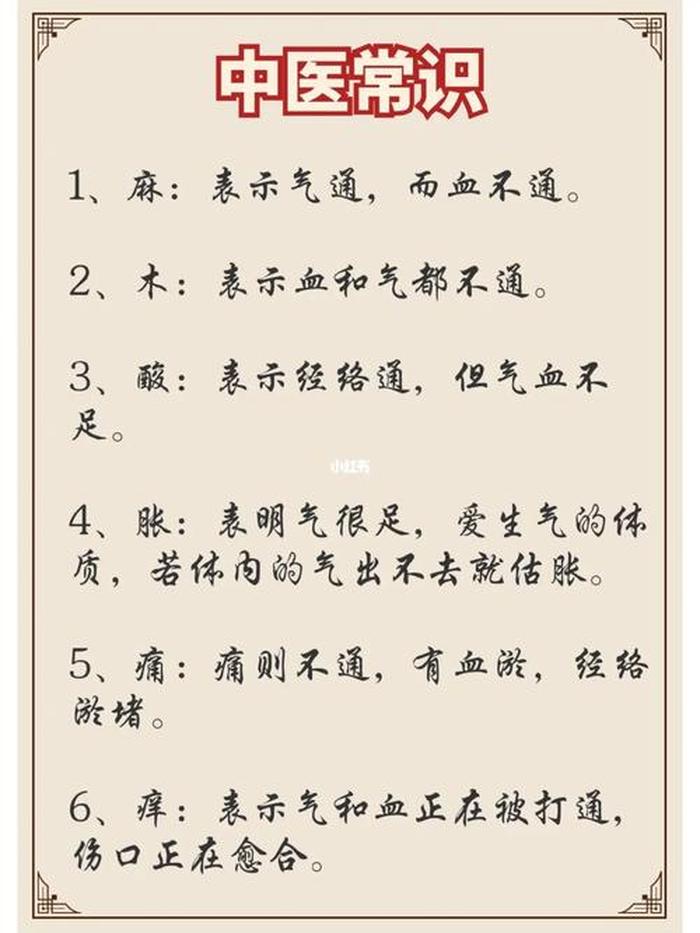 中医常识
1、麻：表示气通，而血不通。
2、木：表示血和气都不通。
3、酸：表示经络通，但气血不
足。
小红书
4、胀：表明气很足，爱生气的体
质，若体内的气出不去就估胀。
5、痛：痛则不通，有血淤，经络
淤堵。
6、痒：表示气和血正在被打通，
伤口正在愈合。